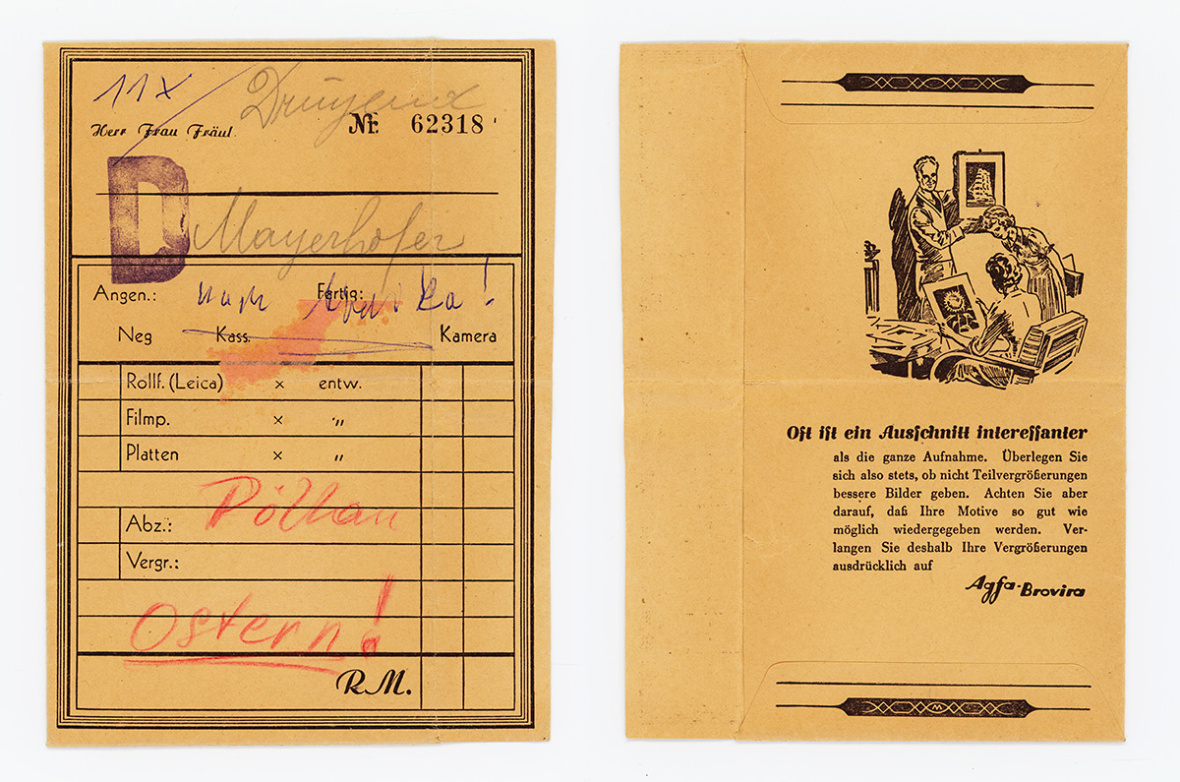 11 x
Herr Frau Fräul.
Nr. 62318
D
Mayerhofer
Angen.: Fertig:
Neg Kass. Kamera
Rollf. (Leica) × entw.
Filmp. × „
Platten × „
Pöllau
Abz.:
Vergr.:
Ostern!
RM.
Oft ist ein Ausschnitt interessanter
als die ganze Aufnahme. Überlegen Sie
sich also stets, ob nicht Teilvergrößerungen
bessere Bilder geben. Achten Sie aber
darauf, daß Ihre Motive so gut wie
möglich wiedergegeben werden. Ver-
langen Sie deshalb Ihre Vergrößerungen
ausdrücklich auf
Agfa-Brovira
M